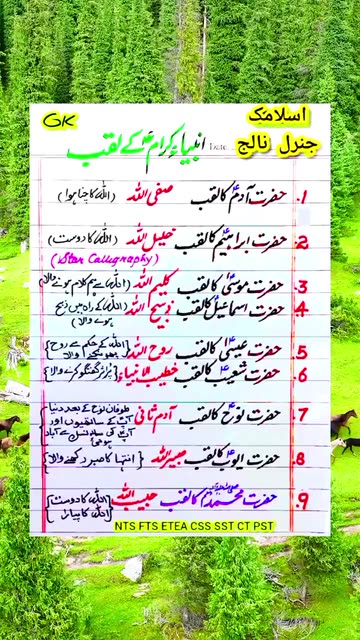 GK
اسلامک
جنرل نالج
انبیاء کرامؑ کے لقب Date
1. حضرت آدمؑ کا لقب صفی اللہ (اللہ کا چنا ہوا)
2. حضرت ابراہیمؑ کا لقب خلیل اللہ (اللہ کا دوست)
(Star Calligraphy)
3. حضرت موسیٰؑ کا لقب کلیم اللہ (اللہ سے ہم کلام ہونے والا)
4. حضرت اسماعیلؑ کا لقب ذبیح اللہ (اللہ کے راہ میں ذبح
ہونے والا)
5. حضرت عیسیٰؑ کا لقب روح اللہ {اللہ کے حکم سے روح
والا}
6. حضرت شعیبؑ کا لقب خطیب الانبیاء {پُر اثر گفتگو کرنے والا}
7. حضرت نوحؑ کا لقب آدم ثانی {طوفان نوح کے بعد دنیا
آپ کے ساتھیوں اور
آپ کی نسل سے آباد
ہوئی}
8. حضرت ایوبؑ کا لقب صبیر اللہ {انتہا کا صبر رکھنے والا}
9. حضرت محمدﷺ کا لقب حبیب اللہ {اللہ کا دوست
اللہ کا پیارا}
NTS FTS ETEA CSS SST CT PST